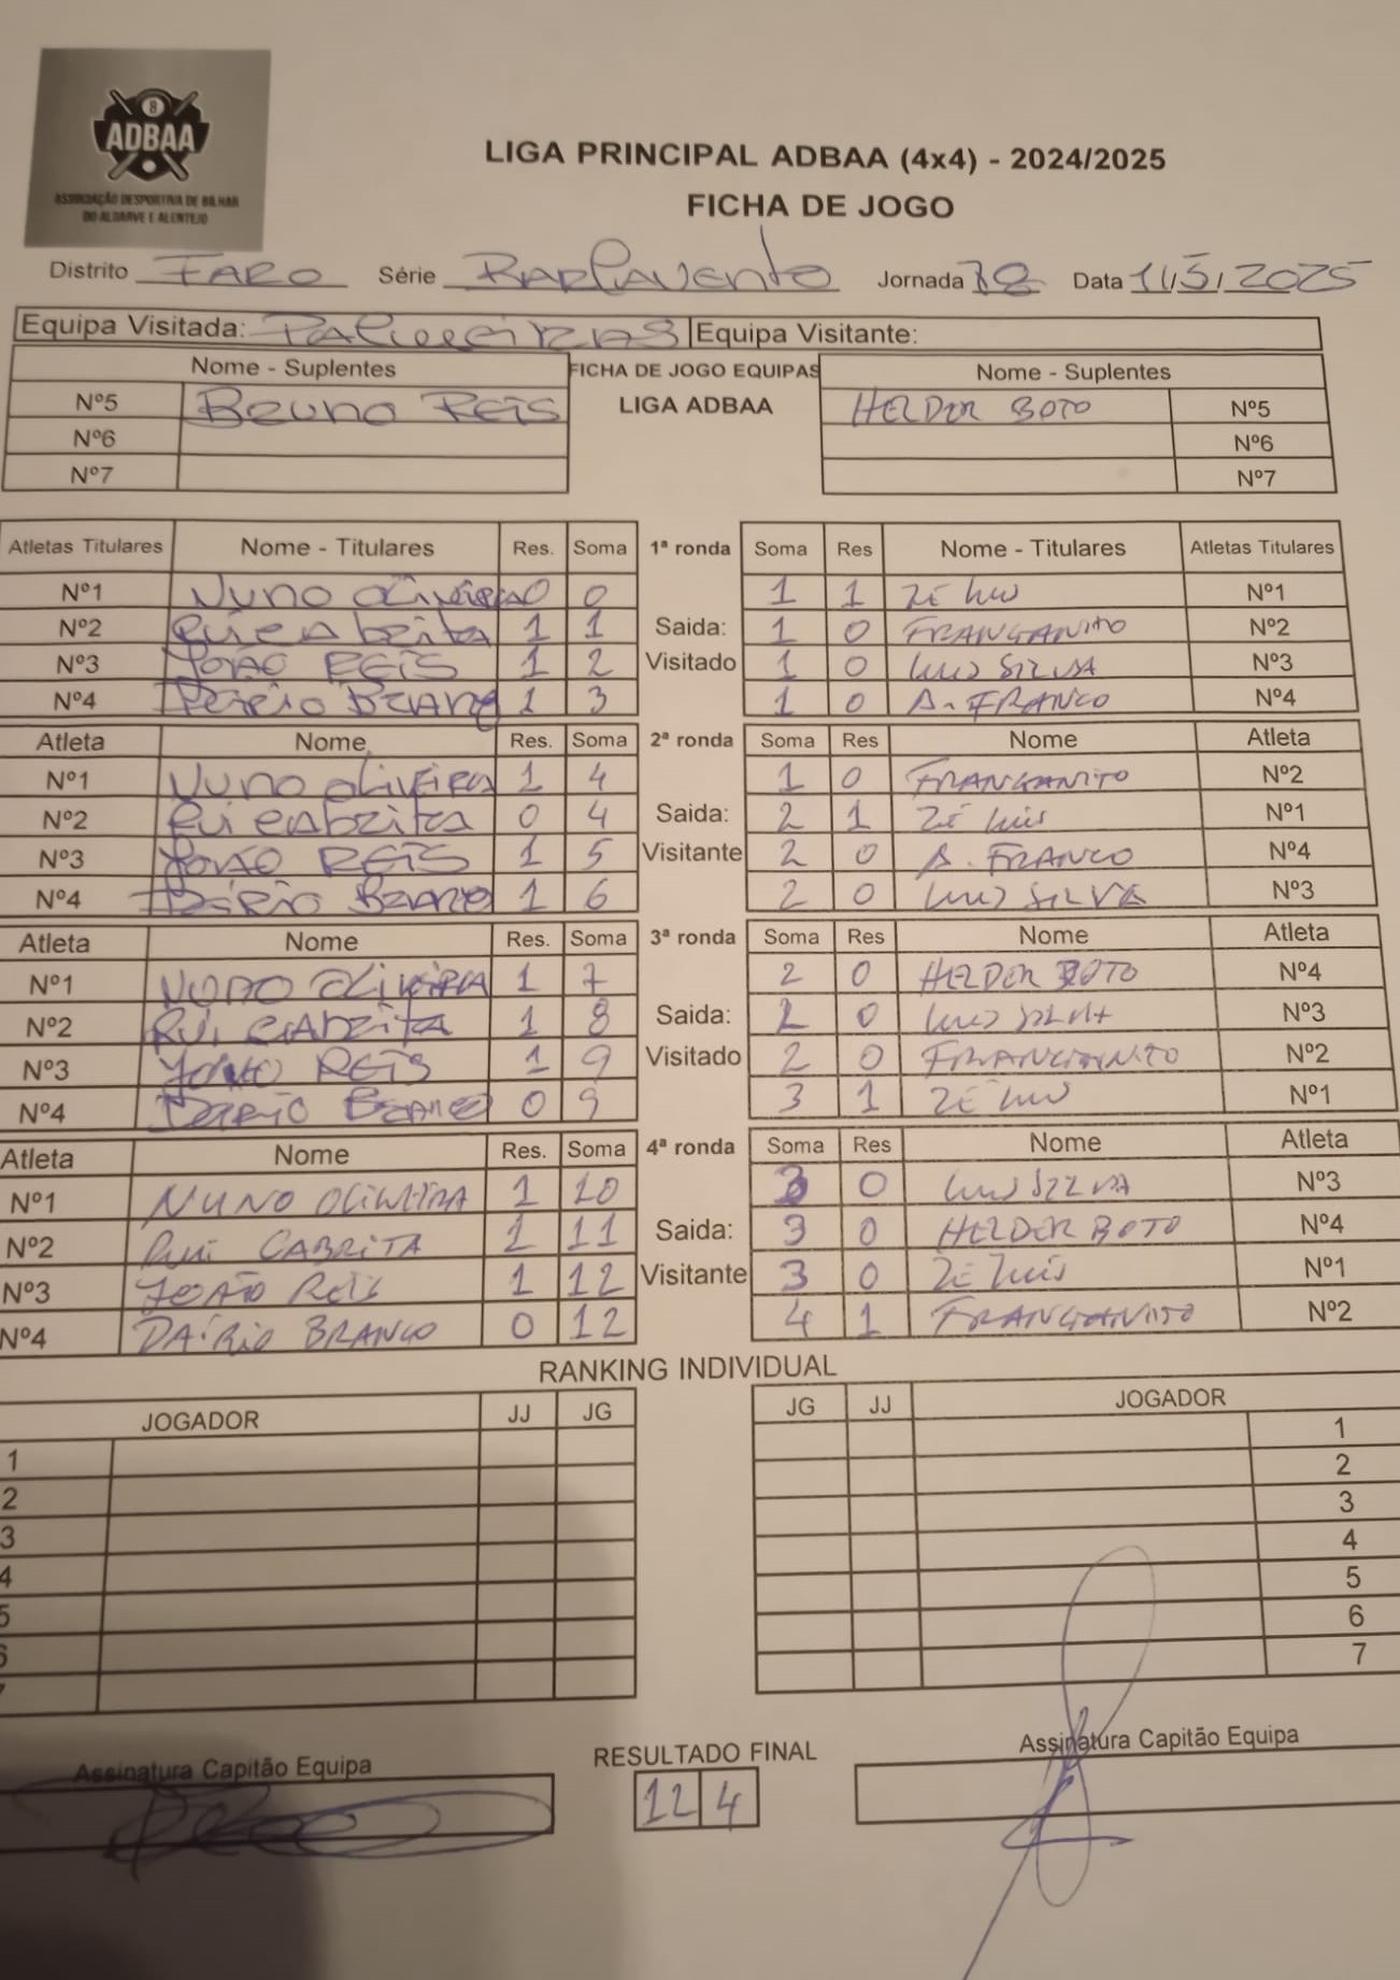 8
ADBAA
ASSOCIAÇÃO DESPORTIVA DE BILHAR
DO ALGARVE E ALENTEJO
LIGA PRINCIPAL ADBAA (4x4) - 2024/2025
FICHA DE JOGO
Distrito FARO Série Barlavento Jornada 18 Data 11/5/2025
Equipa Visitada: Palmeiras Equipa Visitante:
Nome - Suplentes FICHA DE JOGO EQUIPAS Nome - Suplentes
Nº5 Bruno REIS LIGA ADBAA HELDER BOTO Nº5
Nº6 Nº6
Nº7 Nº7
Atletas Titulares Nome - Titulares Res. Soma 1ª ronda Soma Res Nome - Titulares Atletas Titulares
Nº1 Nuno Oliveira 0 0 1 1 Zé Luis Nº1
Nº2 Rui Cabrita 1 1 Saida: 1 0 FRANGANITO Nº2
Nº3 João REIS 1 2 Visitado 1 0 Luis SILVA Nº3
Nº4 Dário Branco 1 3 1 0 A. FRANCO Nº4
Atleta Nome Res. Soma 2ª ronda Soma Res Nome Atleta
Nº1 Nuno Oliveira 1 4 1 0 FRANGANITO Nº2
Nº2 Rui Cabrita 0 4 Saida: 2 1 Zé Luis Nº1
Nº3 João REIS 1 5 Visitante 2 0 A. FRANCO Nº4
Nº4 Dário Branco 1 6 2 0 Luis SILVA Nº3
Atleta Nome Res. Soma 3ª ronda Soma Res Nome Atleta
Nº1 NUNO Oliveira 1 7 2 0 HELDER BOTO Nº4
Nº2 Rui Cabrita 1 8 Saida: 2 0 Luis SILVA Nº3
Nº3 João REIS 1 9 Visitado 2 0 FRANGANITO Nº2
Nº4 Dário Branco 0 9 3 1 Zé Luis Nº1
Atleta Nome Res. Soma 4ª ronda Soma Res Nome Atleta
Nº1 NUNO OLIVEIRA 1 10 3 0 Luis SILVA Nº3
Nº2 Rui CABRITA 1 11 Saida: 3 0 HELDER BOTO Nº4
Nº3 JOÃO REIS 1 12 Visitante 3 0 Zé Luis Nº1
Nº4 DÁRIO BRANCO 0 12 4 1 FRANGANITO Nº2
RANKING INDIVIDUAL
JOGADOR JJ JG JG JJ JOGADOR
1 1
2 2
3 3
4 4
5 5
6 6
7
Assinatura Capitão Equipa RESULTADO FINAL Assinatura Capitão Equipa
12 4